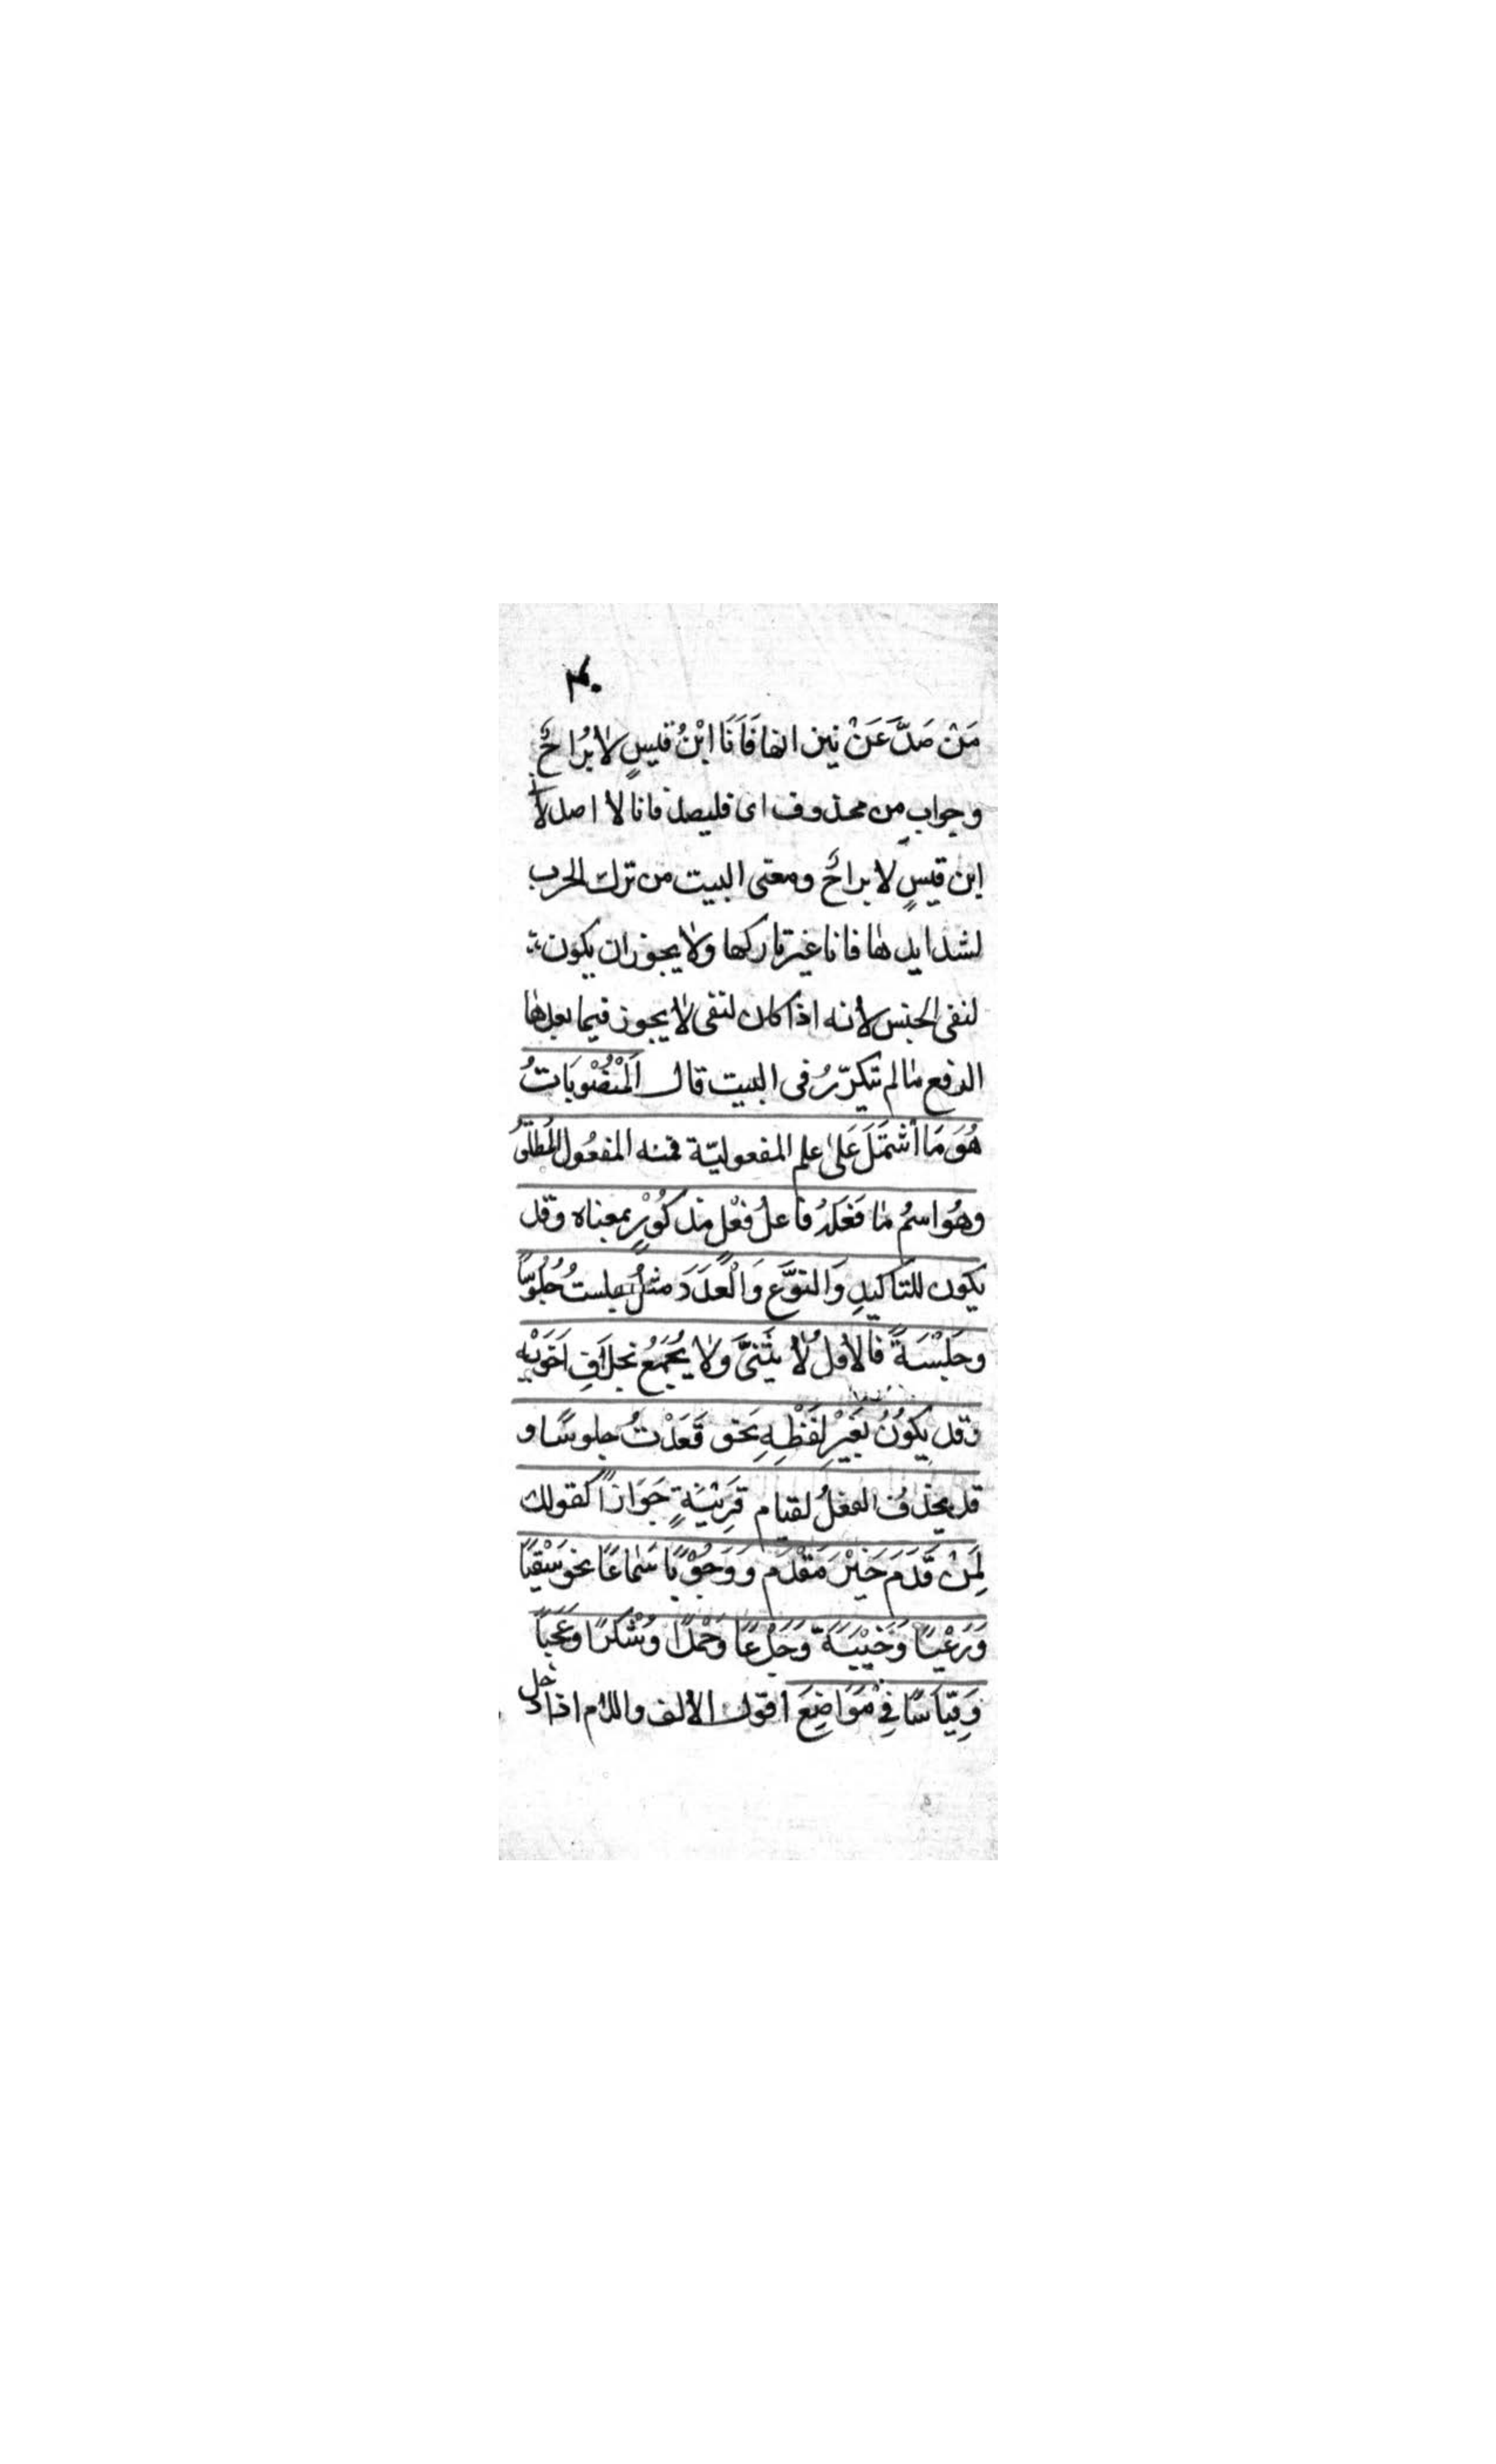 مَنْ صَدَّ عَنْ نيرانها فَاَنَا ابْنُ قيسٍ لا بُرَاحُ
وجواب من محذوف اى فليصد فانا لا اصد لأ
ابن قيسٍ لا براحُ ومعنى البيت من ترك الحرب
لشدايدها فانا غير تاركها ولا يجوز ان يكون
لنفى الجنس لأنه اذا كان لنفى لا يجوز فيما بعدها
الرفع ما لم تتكرّرُ فى البيت قال اَلْمَنْصُوْبَاتُ
هُوَ مَا اشْتَمَلَ عَلىٰ علم المفعوليّة فمنه المفعُول المُطلَقُ
وهُو اسمُ ما فَعَلَهُ فاعلُ فعْلٍ مذكُوْرٍ بمعناه وقد
يكون للتاكيدِ وَالنوَّع وَالْعَدَدَ مثلُ جلستُ جُلُوسًا
وجَلْسَةً فالأولُ لاُ يثَنىَّ وَلا يُجْمَعُ بخلَافِ اَخَوَيْه
وقد يكوُنُ بغَيْرِ لفَظْهِ نَحو قَعَدْتُ جلوسًا و
قد يحذفُ الفعلُ لقيام قَرِيْنَةٍ جَوَازًا كقولك
لِمَنْ قَدَمَ خَيْرَ مَقْدَمٍ وَوَجُوْبًا سَماعًا نحو سَقْيًا
وَرَعْيًا وَخَيْبَةً وَجَدْعًا وَحَمْدًا وَشُكرًا وَعَجَبًا
وَقِيَاسًا فِىْ مَوَاضِعَ اقول الألف واللام اذا دخل